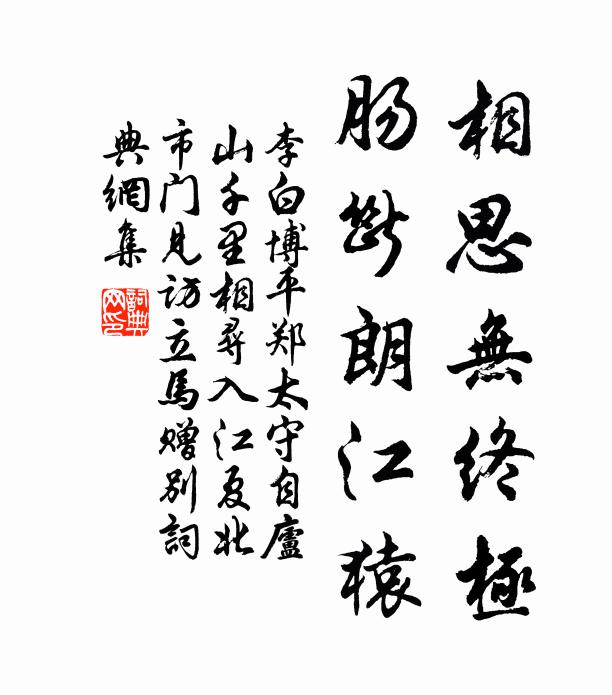 相思無終極
肠斷朗江猿
李白博平郑太守自廬
山千里相尋入江夏北
市门見访立馬赠别詞
典網集
詞典
网印